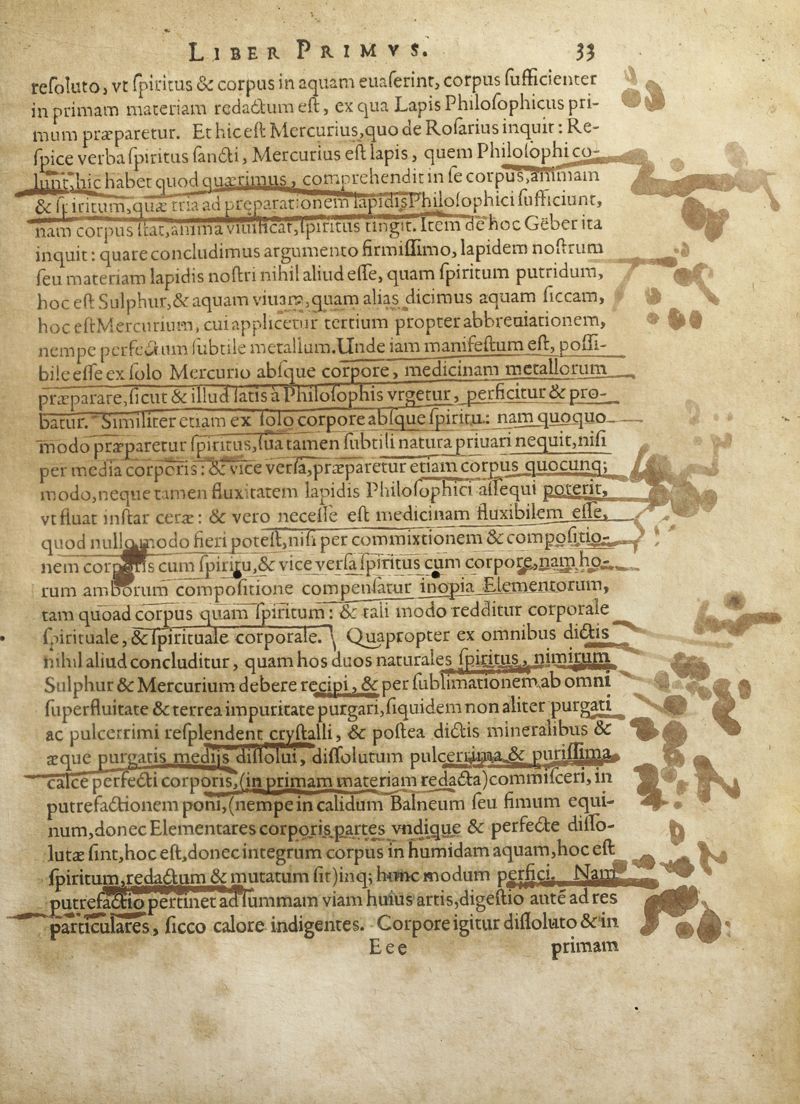 LIBER PRIMVS. 33
reſoluto, vt ſpiritus & corpus in aquam euaſerint, corpus ſufficienter
in primam materiam redactum eſt, ex qua Lapis Philoſophicus pri-
mum præparetur. Et hic eſt Mercurius, quo de Roſarius inquit: Re-
ſpice verba ſpiritus ſancti, Mercurius eſt lapis, quem Philoſophi co-
lunt, hic habet quod quærimus, comprehendit in ſe corpus, animam
& ſpiritum, quæ tria ad preparationem lapidis Philoſophici ſufficiunt,
nam corpus ſtat, anima viuificat, ſpiritus tingit. Item de hoc Geber ita
inquit: quare concludimus argumento firmiſſimo, lapidem noſtrum
ſeu materiam lapidis noſtri nihil aliud eſſe, quam ſpiritum putridum,
hoc eſt Sulphur, & aquam viuam, quam alias dicimus aquam ſiccam,
hoc eſt Mercurium, cui applicetur tertium propter abbreuiationem,
nempe perfectum ſubtile metallum. Unde iam manifeſtum eſt, poſſi-
bile eſſe ex ſolo Mercurio abſque corpore, medicinam metallorum
præparare, ſicut & illud ſatis à Philoſophis vrgetur, perficitur & pro-
batur. Similiter etiam ex ſolo corpore abſque ſpiritu: nam quoquo
modo præparetur ſpiritus, ſua tamen ſubtili natura priuari nequit, niſi
per media corporis: & vice verſa, præparetur etiam corpus quocunq;
modo, neque tamen fluxitatem lapidis Philoſophici aſſequi poterit,
vt fluat inſtar ceræ: & vero neceſſe eſt medicinam fluxibilem eſſe,
quod nullo modo fieri poteſt, niſi per commixtionem & compoſitio-
nem corporis cum ſpiritu, & vice verſa ſpiritus cum corpore, nam ho-
rum amborum compoſitione compenſatur inopia Elementorum,
tam quoad corpus quam ſpiritum: & tali modo redditur corporale
ſpirituale, & ſpirituale corporale. Quapropter ex omnibus dictis
nihil aliud concluditur, quam hos duos naturales ſpiritus, nimirum
Sulphur & Mercurium debere recipi, & per ſublimationem ab omni
ſuperfluitate & terrea impuritate purgari, ſiquidem non aliter purgati
ac pulcerrimi reſplendent cryſtalli, & poſtea dictis mineralibus &
æque purgatis medijs diſſolui, diſſolutum pulcerrima & puriſſima
calce perfecti corporis, (in primam materiam redacta) commiſceri, in
putrefactionem poni, (nempe in calidum Balneum ſeu fimum equi-
num, donec Elementares corporis partes vndique & perfecte diſſo-
lutæ ſint, hoc eſt, donec integrum corpus in humidam aquam, hoc eſt
ſpiritum, redactum & mutatum ſit) inq; hunc modum perfici. Nam
putrefactio pertinet ad ſummam viam huius artis, digeſtio ante ad res
particulares, ſicco calore indigentes. Corpore igitur diſſoluto & in
Eee primam